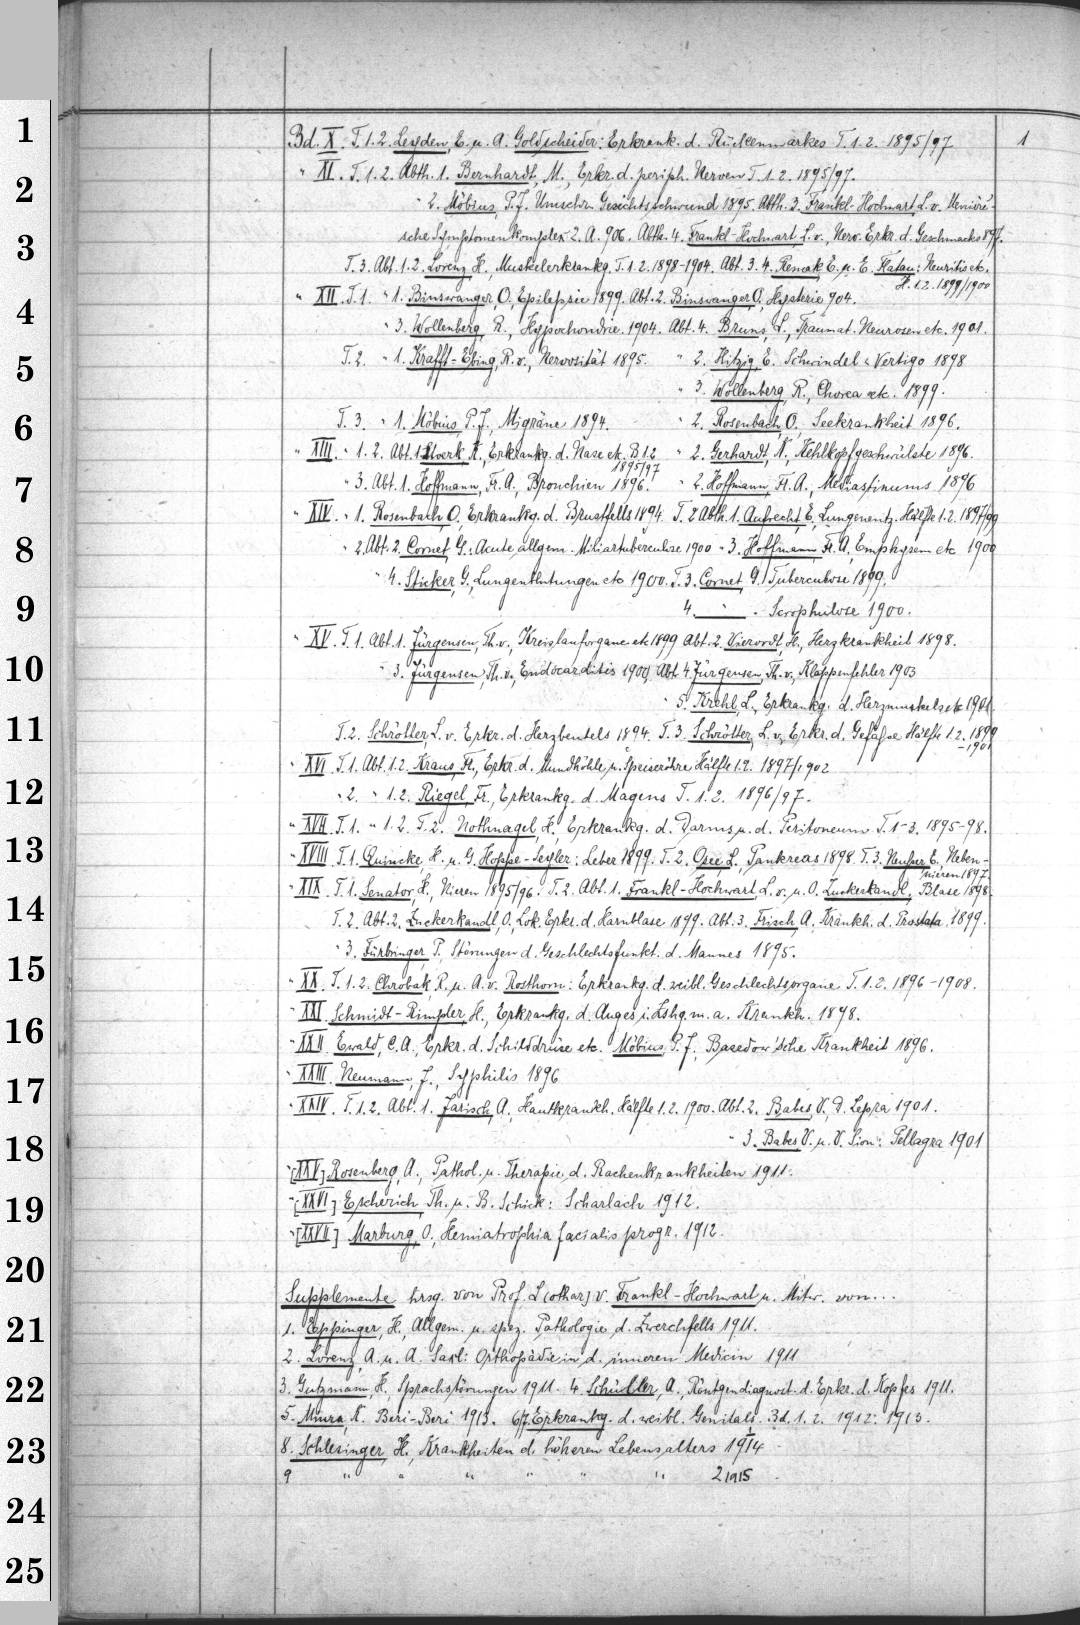 1
Bd. X. T. 1. 2. Leyden, E. u. A. Goldscheider: Erkrank. d. Rückenmarkes T. 1. 2. 1895/97 1
" XI. T. 1. 2. Abth. 1. Bernhardt, M., Erkr. d. periph. Nerven T. 1. 2. 1895/97.
2
" 2. Möbius, P. J. Umschr. Gesichtsschwund 1895. Abth. 3. Frankl-Hochwart, L. v. Menière'-
3
sche Symptomenkomplex 2. A. 906. Abth. 4. Frankl-Hochwart L. v. Nerv. Erkr. d. Geschmacks 897.
T. 3. Abt. 1. 2. Lorenz H., Muskelerkrankg. T. 1. 2. 1898-1904. Abt. 3. 4. Remak E. u. E. Flatau: Neuritis etc.
H. 1. 2. 1899/1900
4
" XII. T. 1. " 1. Binswanger O, Epilepsie 1899. Abt. 2. Binswanger O, Hysterie 904.
" 3. Wollenberg R., Hypochondrie. 1904. Abt. 4. Bruns, L., Traumat. Neurosen etc. 1901.
5
T. 2. " 1. Krafft-Ebing, R. v., Nervosität 1895. " 2. Hitzig, E. Schwindel & Vertigo 1898
" 3. Wollenberg, R., Chorea etc. 1899.
6
T. 3. " 1. Möbius, P. J., Migräne 1894. " 2. Rosenbach, O. Seekrankheit 1896.
" XIII. " 1. 2. Abt. 1. Stoerk, K., Erkrankg. d. Nase etc. B. 1. 2 " 2. Gerhardt, K., Kehlkopfgeschwülste 1896.
1895/97
7
" 3. Abt. 1. Hoffmann, Fr. A., Bronchien 1896. " 2. Hoffmann, Fr. A., Mediastinums 1896
" XIV. " 1. Rosenbach O, Erkrankg. d. Brustfells 1894 T. 2 Abth. 1. Aufrecht E, Lungenentz. Hälfte 1. 2. 1897/99
8
" 2. Abt. 2. Cornet G.: Acute allgem. Miliartuberculose 1900 " 3. Hoffmann Fr. A., Emphysem etc 1900
" 4. Sticker, G., Lungenblutungen etc 1900. T. 3. Cornet, G. Tuberculose 1899.
9
4. — . Scrophulose 1900.
" XV. T. 1. Abt. 1. Jürgensen, Th. v., Kreislauforgane etc 1899 Abt. 2. Vierordt, H., Herzkrankheit 1898.
10
" 3. Jürgensen, Th. v., Endocarditis 1900, Abt. 4. Jürgensen, Th. v., Klappenfehler 1903
" 5. Krehl, L., Erkrankg. d. Herzmuskels etc 1901
11
T. 2. Schrötter, L. v. Erkr. d. Herzbeutels 1894. T. 3 Schrötter, L. v., Erkr. d. Gefäße Hälfte 1. 2. 1899
-1901
" XVI T. 1. Abt. 1. 2. Kraus, Fr., Erkr. d. Mundhöhle u. Speiseröhre Hälfte 1. 2. 1897/1902
12
" 2. " 1. 2. Riegel, Fr., Erkrankg. d. Magens T. 1. 2. 1896/97.
" XVII. T. 1. " 1. 2. T. 2. Nothnagel, H., Erkrankg. d. Darms u. d. Peritoneum T. 1-3. 1895-98.
13
" XVIII T. 1. Quincke, H. u. G. Hoppe-Seyler: Leber 1899. T. 2. Oser L., Pankreas 1898. T. 3. Neusser E. Neben-
nieren 1897.
" XIX T. 1. Senator, H., Nieren 1895/96. T. 2. Abt. 1. Frankl-Hochwart, L. v. u. O. Zuckerkandl, Blase 1898.
14
T. 2. Abt. 2. Zuckerkandl, O. Lok. Erkr. d. Harnblase 1899. Abt. 3. Frisch, A. Krankh. d. Prostata 1899.
15
" 3. Fürbringer, P. Störungen d. Geschlechtsfunkt. d. Mannes 1895.
" XX. T. 1. 2. Chrobak, R. u. A. v. Rosthorn: Erkrankg. d. weibl. Geschlechtsorgane T. 1. 2. 1896-1908.
16
" XXI Schmidt-Rimpler, H., Erkrankg. d. Auges i. Zshg. m. a. Krankh. 1898.
" XXII Ewald, C. A., Erkr. d. Schilddrüse etc. Möbius, P. J., Basedow'sche Krankheit 1896.
17
" XXIII. Neumann, J., Syphilis 1896
" XXIV. T. 1. 2. Abt. 1. Jarisch, A., Hautkrankh. Hälfte 1. 2. 1900. Abt. 2. Babes, V. D. Lepra 1901.
18
" 3. Babes V. u. V. Sion: Pellagra 1901
" [XXV] Rosenberg, A., Pathol. u. Therapie d. Rachenkrankheiten 1911.
19
" [XXVI] Escherich Th. u. B. Schick: Scharlach 1912.
" [XXVII] Marburg, O., Hemiatrophia facialis progr. 1912.
20
Supplemente hrsg. von Prof. L(othar) v. Frankl-Hochwart u. Mitw. von...
21
1. Eppinger, H., Allgem. u. spez. Pathologie d. Zwerchfells 1911.
2. Lorenz, A. u. A. Saxl: Orthopädie in d. inneren Medicin 1911
22
3. Gutzmann, H., Sprachstörungen 1911. 4. Schüller, A., Röntgendiagnost. d. Erkr. d. Kopfes 1911.
5. Miura, K. Beri-Beri 1913. 6/7. Erkrankg. d. weibl. Genitals. Bd. 1. 2. 1912. 1913.
23
8. Schlesinger, H., Krankheiten d. höheren Lebensalters 1 1914
9 " " " " " " 2 1915
24
25